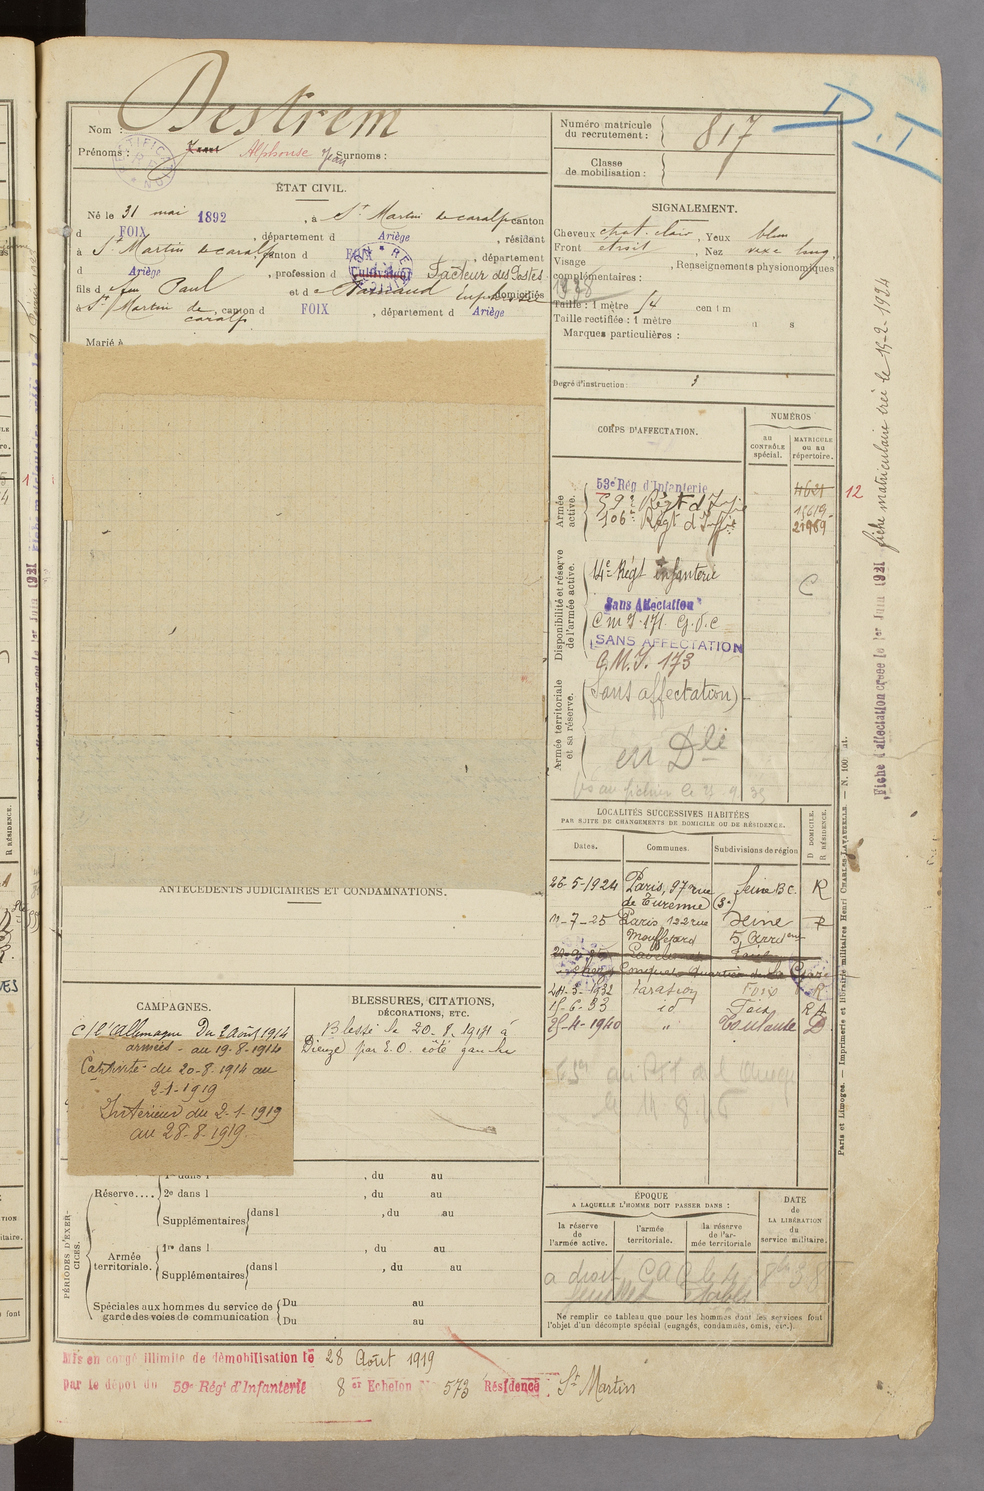 Nom : Destrem
Prénoms : Jean Alphonse Jean Surnoms :
ÉTAT CIVIL.
Né le 31 mai 1892, à St Martin de caralp canton
d FOIX, département d Ariège, résidant
à St Martin de caralp canton d FOIX, département
d Ariège, profession d Cultivateur Facteur des Postes
fils d e feu Paul et d e Euphrasie domiciliés
à St Martin de caralp canton d FOIX, département d Ariège
Marié à
ANTÉCÉDENTS JUDICIAIRES ET CONDAMNATIONS.
CAMPAGNES.
C/ l'Allemagne Du 2 Août 1914
armées - au 19-8-1914
Captivité du 20-8-1914 au
2-1-1919
Intérieur du 2-1-1919
au 28-8-1919
BLESSURES, CITATIONS,
DÉCORATIONS, ETC.
Blessé le 20-8-1914 à
Dieuze par E.O. côté gauche
PÉRIODES D'EXERCICES.
1re dans l , du au
Réserve.... 2e dans l , du au
Supplémentaires dans l , du au
Armée territoriale. 1re dans l , du au
Supplémentaires dans l , du au
Spéciales aux hommes du service de garde des voies de communication Du au
Du au
Mis en congé illimité de démobilisation le 28 Août 1919
par le dépôt du 59e Régt d'Infanterie 8er Echelon N° 573 Résidence St Martin
Numéro matricule
du recrutement : 817
Classe
de mobilisation :
SIGNALEMENT.
Cheveux chat. clair, Yeux bleu
Front étroit, Nez long
Visage , Renseignements physionomiques
complémentaires :
Taille : 1 mètre 54 cen im
Taille rectifiée : 1 mètre
Marques particulières :
Degré d'instruction : 3
CORPS D'AFFECTATION.
NUMÉROS
au
CONTRÔLE
spécial.
MATRICULE
ou au
répertoire.
Armée
active.
53e Rég. d'Infanterie 4621
59e Régt d'Infie 15619
106e Régt d'Infie 21989
Disponibilité et réserve
de l'armée active.
14e Régt infanterie C
Sans Affectation
C m I 171 G.V.C
SANS AFFECTATION
C.M.I. 173
Armée territoriale
et sa réserve.
(Sans affectation)
en Dté
Vs au fichier le
LOCALITÉS SUCCESSIVES HABITÉES
PAR SUITE DE CHANGEMENTS DE DOMICILE OU DE RÉSIDENCE.
Dates. Communes. Subdivisions de région D DOMICILE. R RÉSIDENCE.
26-5-1924 Paris, 97 rue de Turenne (3e) Seine B C. R
11-7-25 Paris 122 rue Mouffetard Seine 5e Arrdt R
Quartier de la Gare
-3-1932 Foix R
15-6-33 id Foix R
25-4-1940 " Toulouse D
ÉPOQUE
A LAQUELLE L'HOMME DOIT PASSER DANS :
la réserve
de
l'armée active.
l'armée
territoriale.
la réserve
de l'ar-
mée territoriale
DATE
de
LA LIBÉRATION
du
service militaire.
a droit C A C
Ne remplir ce tableau que pour les hommes dont les services font
l'objet d'un décompte spécial (engagés, condamnés, omis, etc.).
Paris et Limoges. — Imprimerie et librairie militaires Henri CHARLES-LAVAUZELLE. — N. 100 at.
12
fiche matriculaire créée le 15-2-1924
Fiche d'affectation créée le 1er Juin 1931